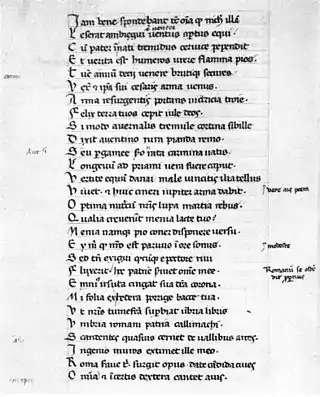 Iam bene spondebant tc oia q nich illa
Leserat ambiegni uenter aptus equi
Cu pater inati tremidus ceruice pependit
Et uerita est humeros urere flamma pios
Tuc animi decii uenere brutiq secures
Vexit et ipa sui cesaris arma uenus
Arma resurgentis portans uictricia troie
Felix terra tuos cepit iule deos
Si modo auernalis tremule cortina sibille
Dixit auentino rura pianda remo
Seu pgamee carmina uatis
Longeuu ad priami uera fuere caput
Vertite equu danai male uincitis ilia tellus
Viuet et huic cineri iupiter arma dabit
Optima nutricu nris lupa martia rebus
Qualia creuerunt menia lacte tuo
Menia namq pio coner disponere uersu
Ei m q nro est paruus i ore sonus
Sed tn exigui pectore riui
Fluxerit hoc patrie omne mee
Enni hirsuta cingat sua corona
Mi folia exhedera porrige bacce tua
Vt nris tumefca supbiat ubria libris
Vmbria romani patria callimachi
Scantentes quasuis cernet de uallibus arces
Ingenio muros extimet ille meo
Roma faue t surgit opus date candida ciues
Omia et iceptis dextera cantet auis